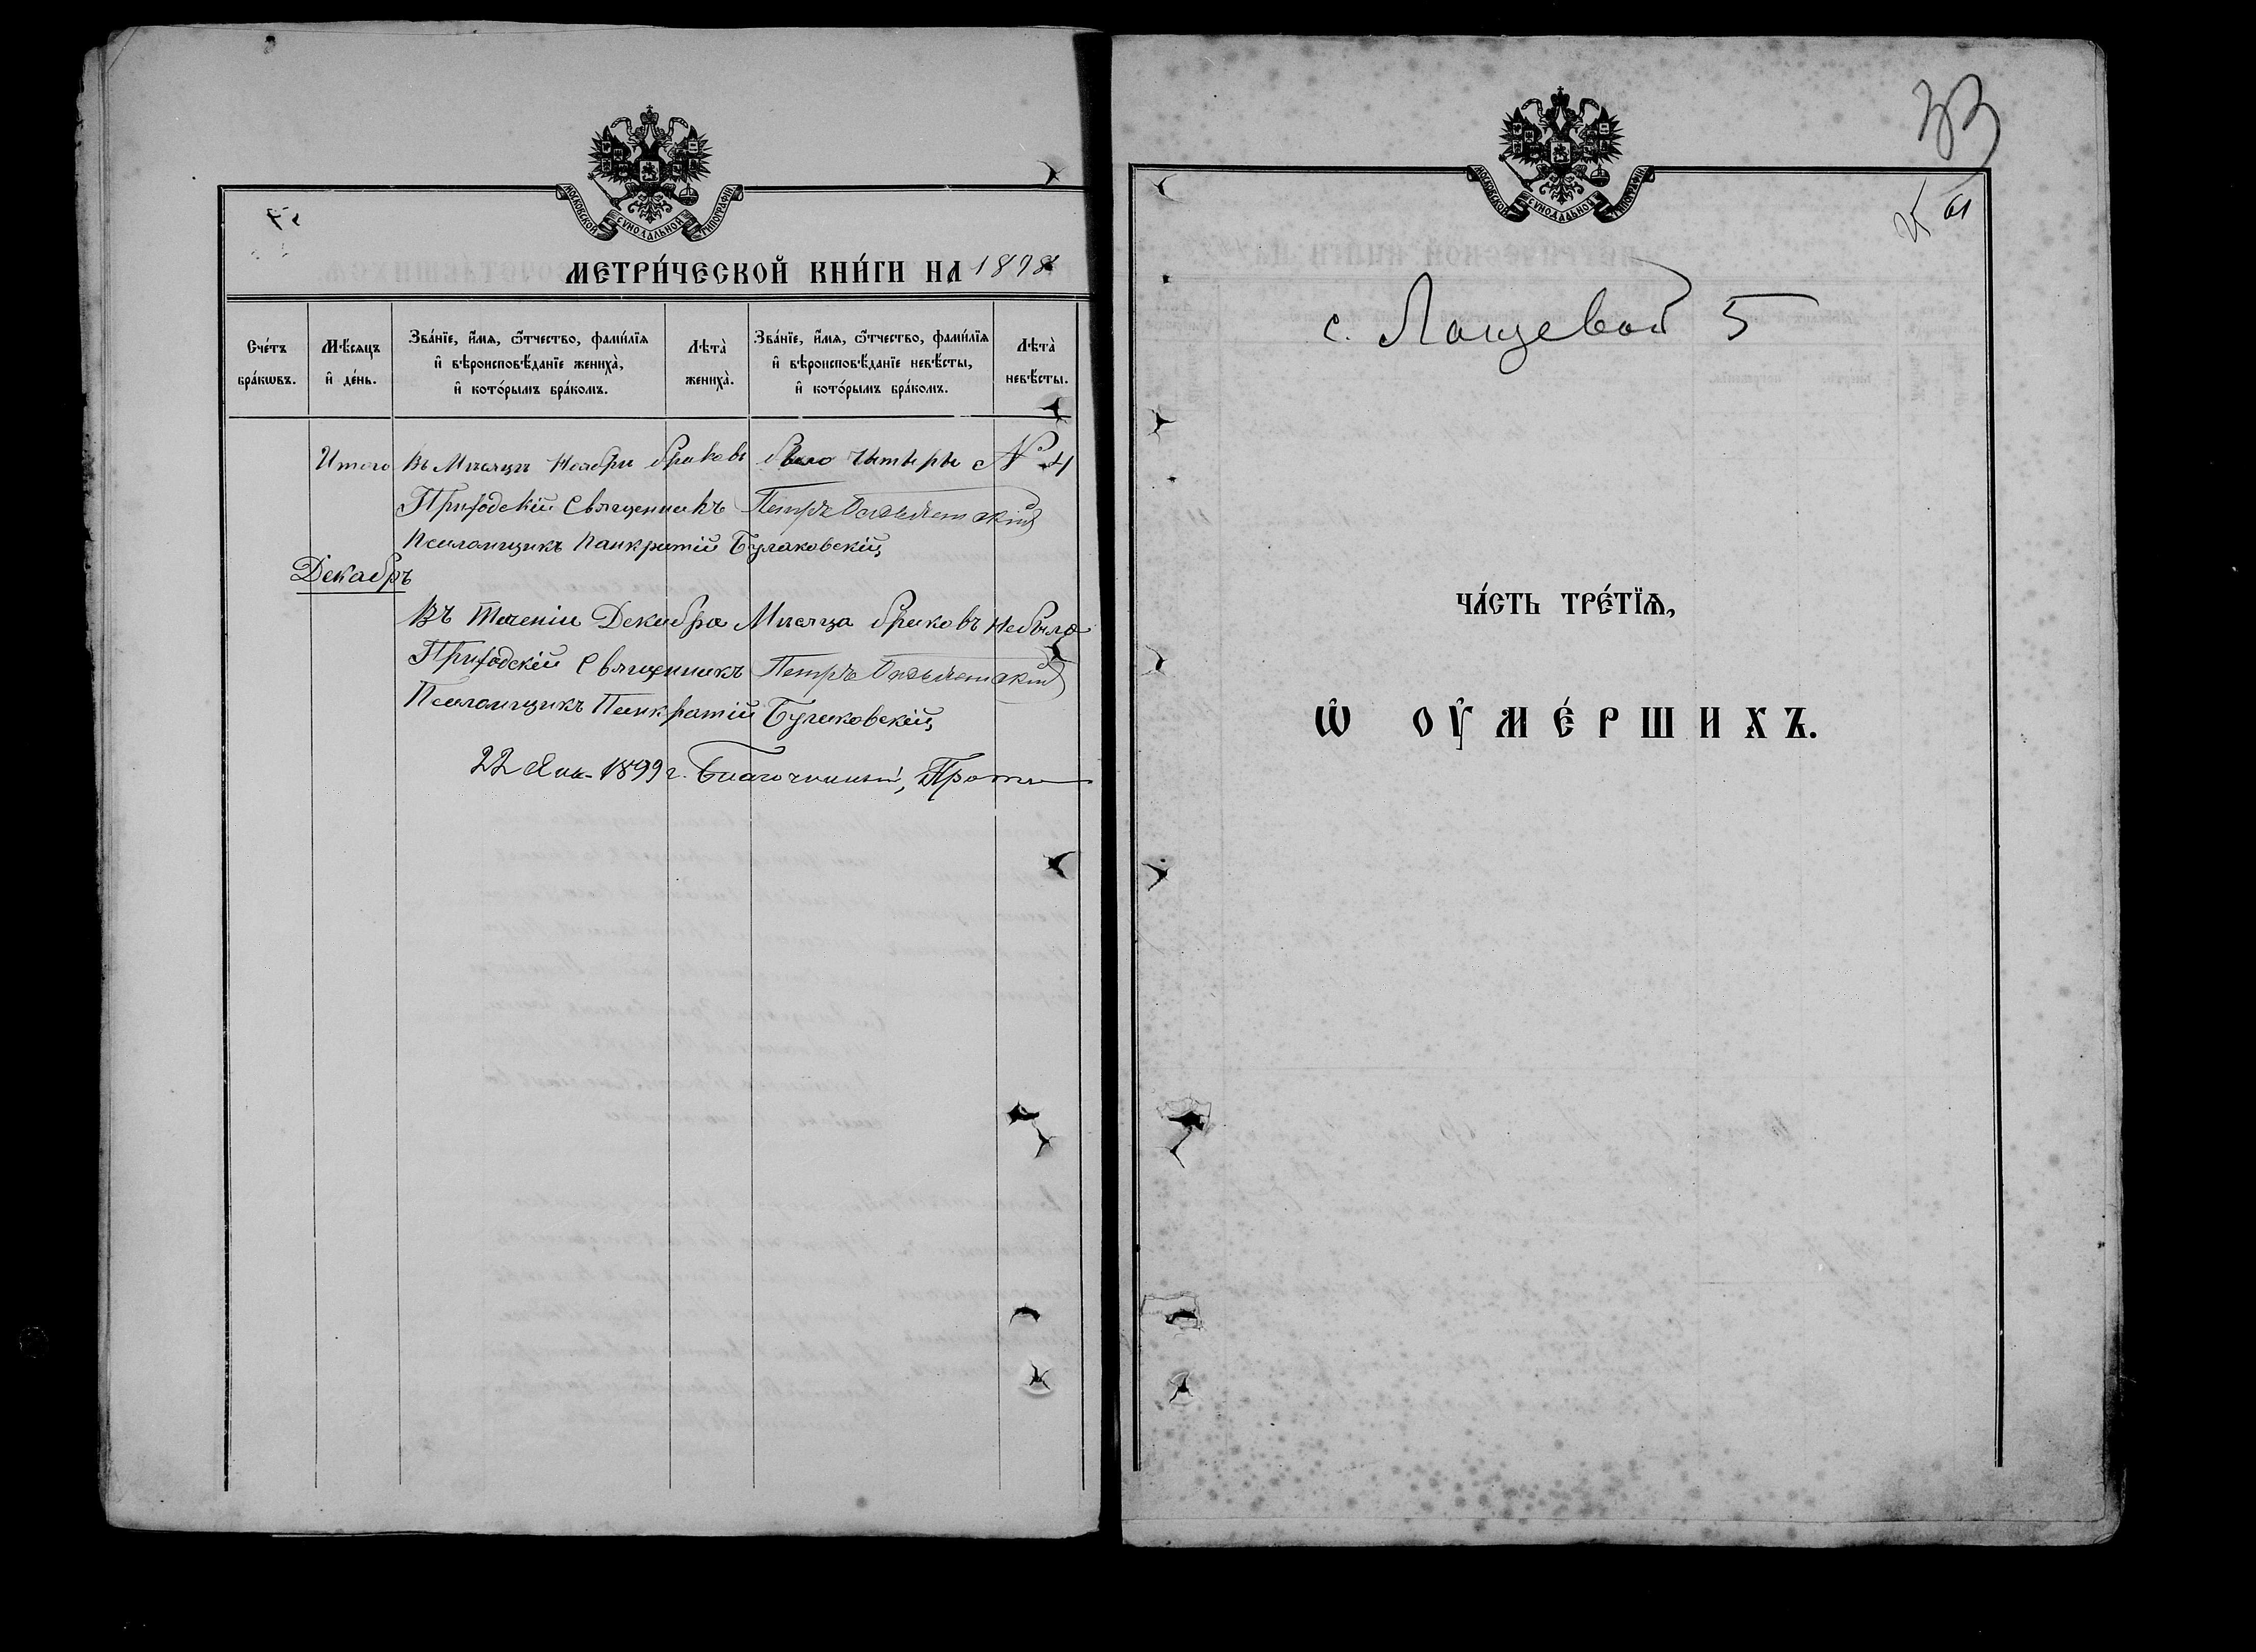 МОСКОВСКОЙ СѴНОДАЛЬНОЙ ТИПОГРАФІИ
МЕТРИ́ЧЕСКОЙ КНИ́ГИ НА 1898
Сче́тъ бра́кѡвъ.
Мѣ́сяцъ и҆ де́нь.
Зва́нїе, и҆́мѧ, ѻ҆́тчество, фами́лїѧ
и҆ вѣроисповѣ́данїе жениха̀,
и҆ кото́рымъ бра́комъ.
Лѣта̀ жениха̀.
Зва́нїе, и҆́мѧ, ѻ҆́тчество, фами́лїѧ
и҆ вѣроисповѣ́данїе невѣ́сты,
и҆ кото́рымъ бра́комъ.
Лѣта̀ невѣ́сты.
Итого въ Мѣсяцѣ Ноябрѣ браковъ было четыре № 4
Приходскій Священникъ Петръ
Псаломщикъ Панкратій Булаковскій
Декабрь
Въ теченіи Декабря Мѣсяца браковъ небыло
Приходскій Священникъ Петръ
Псаломщикъ Панкратій Булаковскій
22 Янв. 1899 г. Благочинный, Прот
33
61
МОСКОВСКОЙ СѴНОДАЛЬНОЙ ТИПОГРАФІИ
с. Лащевой 5
ЧА́СТЬ ТРЕ́ТЇѦ,
Ѡ҆ ОУ҆МЕ́РШИХЪ.